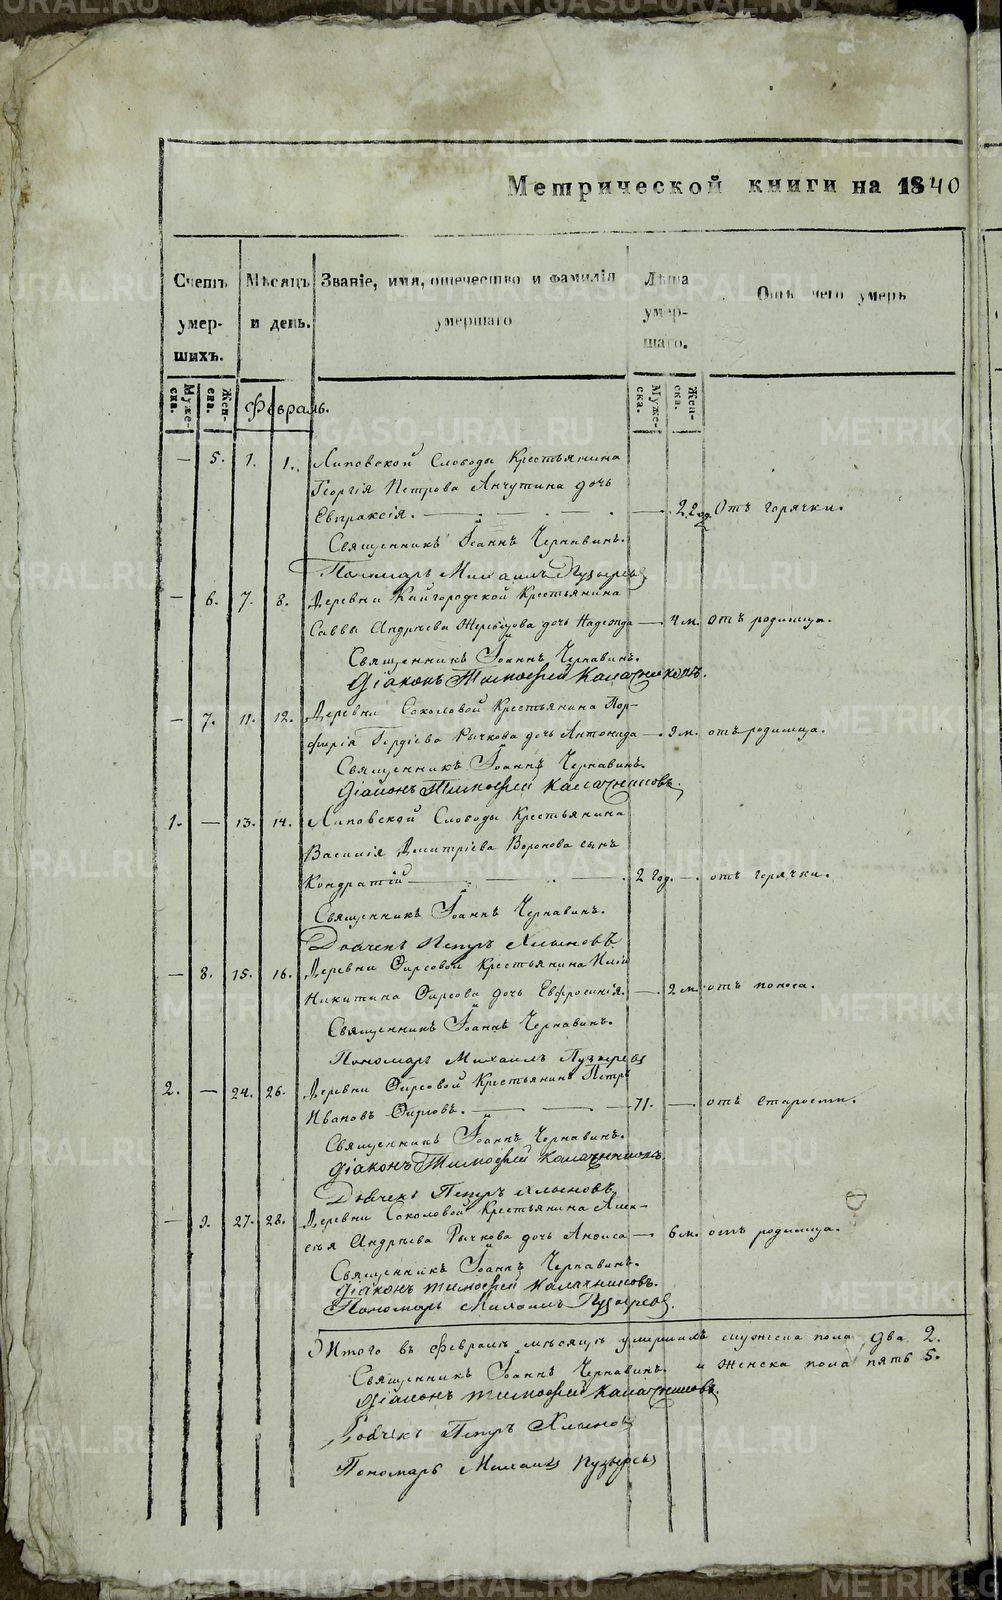 Метрической книги на 1840
Счетъ умершихъ.
Мѣсяцъ и день.
Званіе, имя, отечество и фамилія умершаго
Лѣта умершаго.
Отъ чего умеръ
Мужеска. Женска.
Февраль.
Мужеска. Женска.
— 5. 1. 1. Липовской Слободы Крестьянина
Георгія Петрова Анчутина дочь
Евпраксія. — — 22 год. Отъ горячки.
Священникъ Іоаннъ Чернавинъ.
Пономарь Михаилъ Пузыревъ
— 6. 7. 8. Деревни Кайгородской Крестьянина
Саввы Андрѣева дочь Надежда — 4 м. отъ родимца.
Священникъ Іоаннъ Чернавинъ.
Діаконъ Тимофей Калачниковъ.
— 7. 11. 12. Деревни Соколовой Крестьянина Пор-
фирія Гордіева Рычкова дочь Антонида — 9 м. отъ родимца.
Священникъ Іоаннъ Чернавинъ.
Діаконъ Тимофей Калачниковъ.
1. — 13. 14. Липовской Слободы Крестьянина
Василія Дмитріева Воронова сынъ
Кондратій — 2 год. — отъ горячки.
Священникъ Іоаннъ Чернавинъ.
Дьячекъ Петръ Хлыновъ
— 8. 15. 16. Деревни Фирсовой Крестьянина
Никитина Фирсова дочь Евфросинія. — 2 м. отъ поноса.
Священникъ Іоаннъ Чернавинъ.
Пономарь Михаилъ Пузыревъ
2. — 24. 26. Деревни Фирсовой Крестьянинъ Петръ
Ивановъ Фирсовъ. — 71. — отъ старости.
Священникъ Іоаннъ Чернавинъ.
Діаконъ Тимофей Калачниковъ.
Дьячекъ Петръ Хлыновъ
— 9. 27. 28. Деревни Соколовой Крестьянина Алек-
сѣя Андрѣева Рычкова дочь Анфиса — 6 м. отъ родимца.
Священникъ Іоаннъ Чернавинъ.
Діаконъ Тимофей Калачниковъ.
Пономарь Михаилъ Пузыревъ.
Итого въ Февралѣ мѣсяцѣ умершихъ мужеска пола два 2.
и женска пола пять 5.
Священникъ Іоаннъ Чернавинъ.
Діаконъ Тимофей Калачниковъ.
Дьячекъ Петръ Хлыновъ
Пономарь Михаилъ Пузыревъ
METRIKI.GASO-URAL.RU